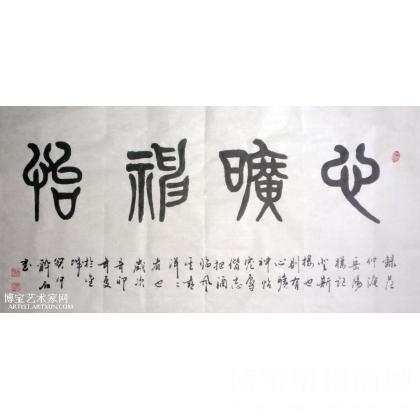 心曠神怡
錄范
仲淹
岳陽
樓記
登斯
樓也
則有
心曠
神怡
寵辱
偕忘
把酒
臨風
其喜
洋〻
者也
歲次
辛卯
博宝艺术家网
ARTIST.ARTXUN.COM